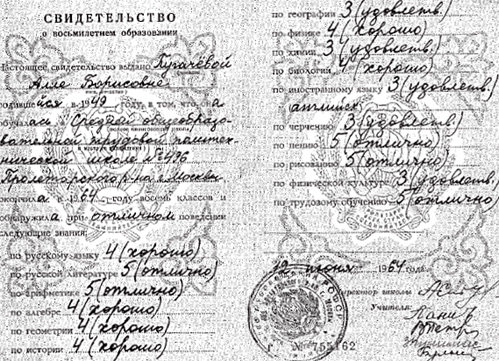 СВИДЕТЕЛЬСТВО
о восьмилетнем образовании
Настоящее свидетельство выдано Пугачевой
Алле Борисовне
родившейся в 1949 году, в том, что она
обучалась в Средней общеобразо-
вательной трудовой политех-
нической школе № 496
Пролетарского р-на г. Москвы
окончила в 1964 году восемь классов и
обнаружила при отличном поведении
следующие знания:
по русскому языку 4 (хорошо)
по русской литературе 5 (отлично)
по арифметике 5 (отлично)
по алгебре 4 (хорошо)
по геометрии 4 (хорошо)
по истории 4 (хорошо)
по географии 3 (удовлетв.)
по физике 4 (хорошо)
по химии 3 (удовлетв.)
по биологии 4 (хорошо)
по иностранному языку 3 (удовлетв.)
английск.
по черчению 3 (удовлетв.)
по пению 5 (отлично)
по рисованию 5 (отлично)
по физической культуре 3 (удовлетв.)
по трудовому обучению 5 (отлично)
12 июня 1964 года.
Директор школы
Учителя:
Г № 755162